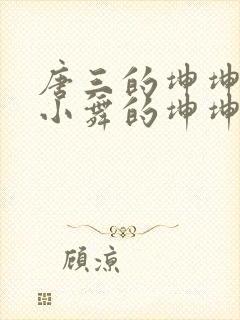 唐三的坤坤
小舞的坤坤
顾凉